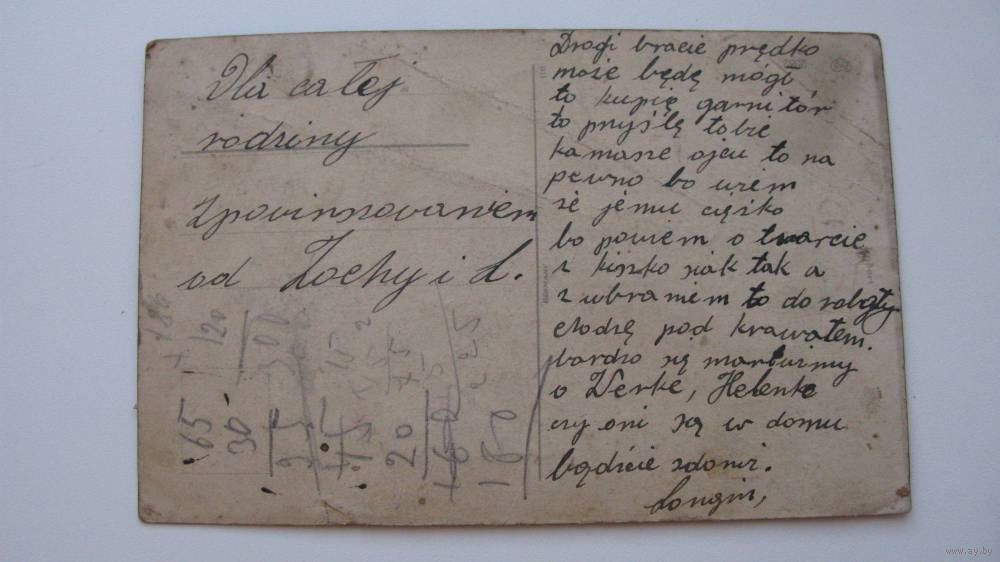 Dla całej
rodziny
z powinszowaniem
od Zochy i L.
Drogi bracie prędko
może będę mógł
to kupię garnitór
to pnyślę tobie
kamasze ojcu to na
pewno bo wiem
że jemu ciężko
bo powiem o twarcie
z kiszko jak tak a
z wbraniem to do roboty
chodzę pod krawatem.
bardzo się martwimy
o Werkę, Helenke
czy oni są w domu
bądźcie zdowi.
Longin,
+ 180
120
300
165
30
75
15
20
160
180
225
www.ay.by